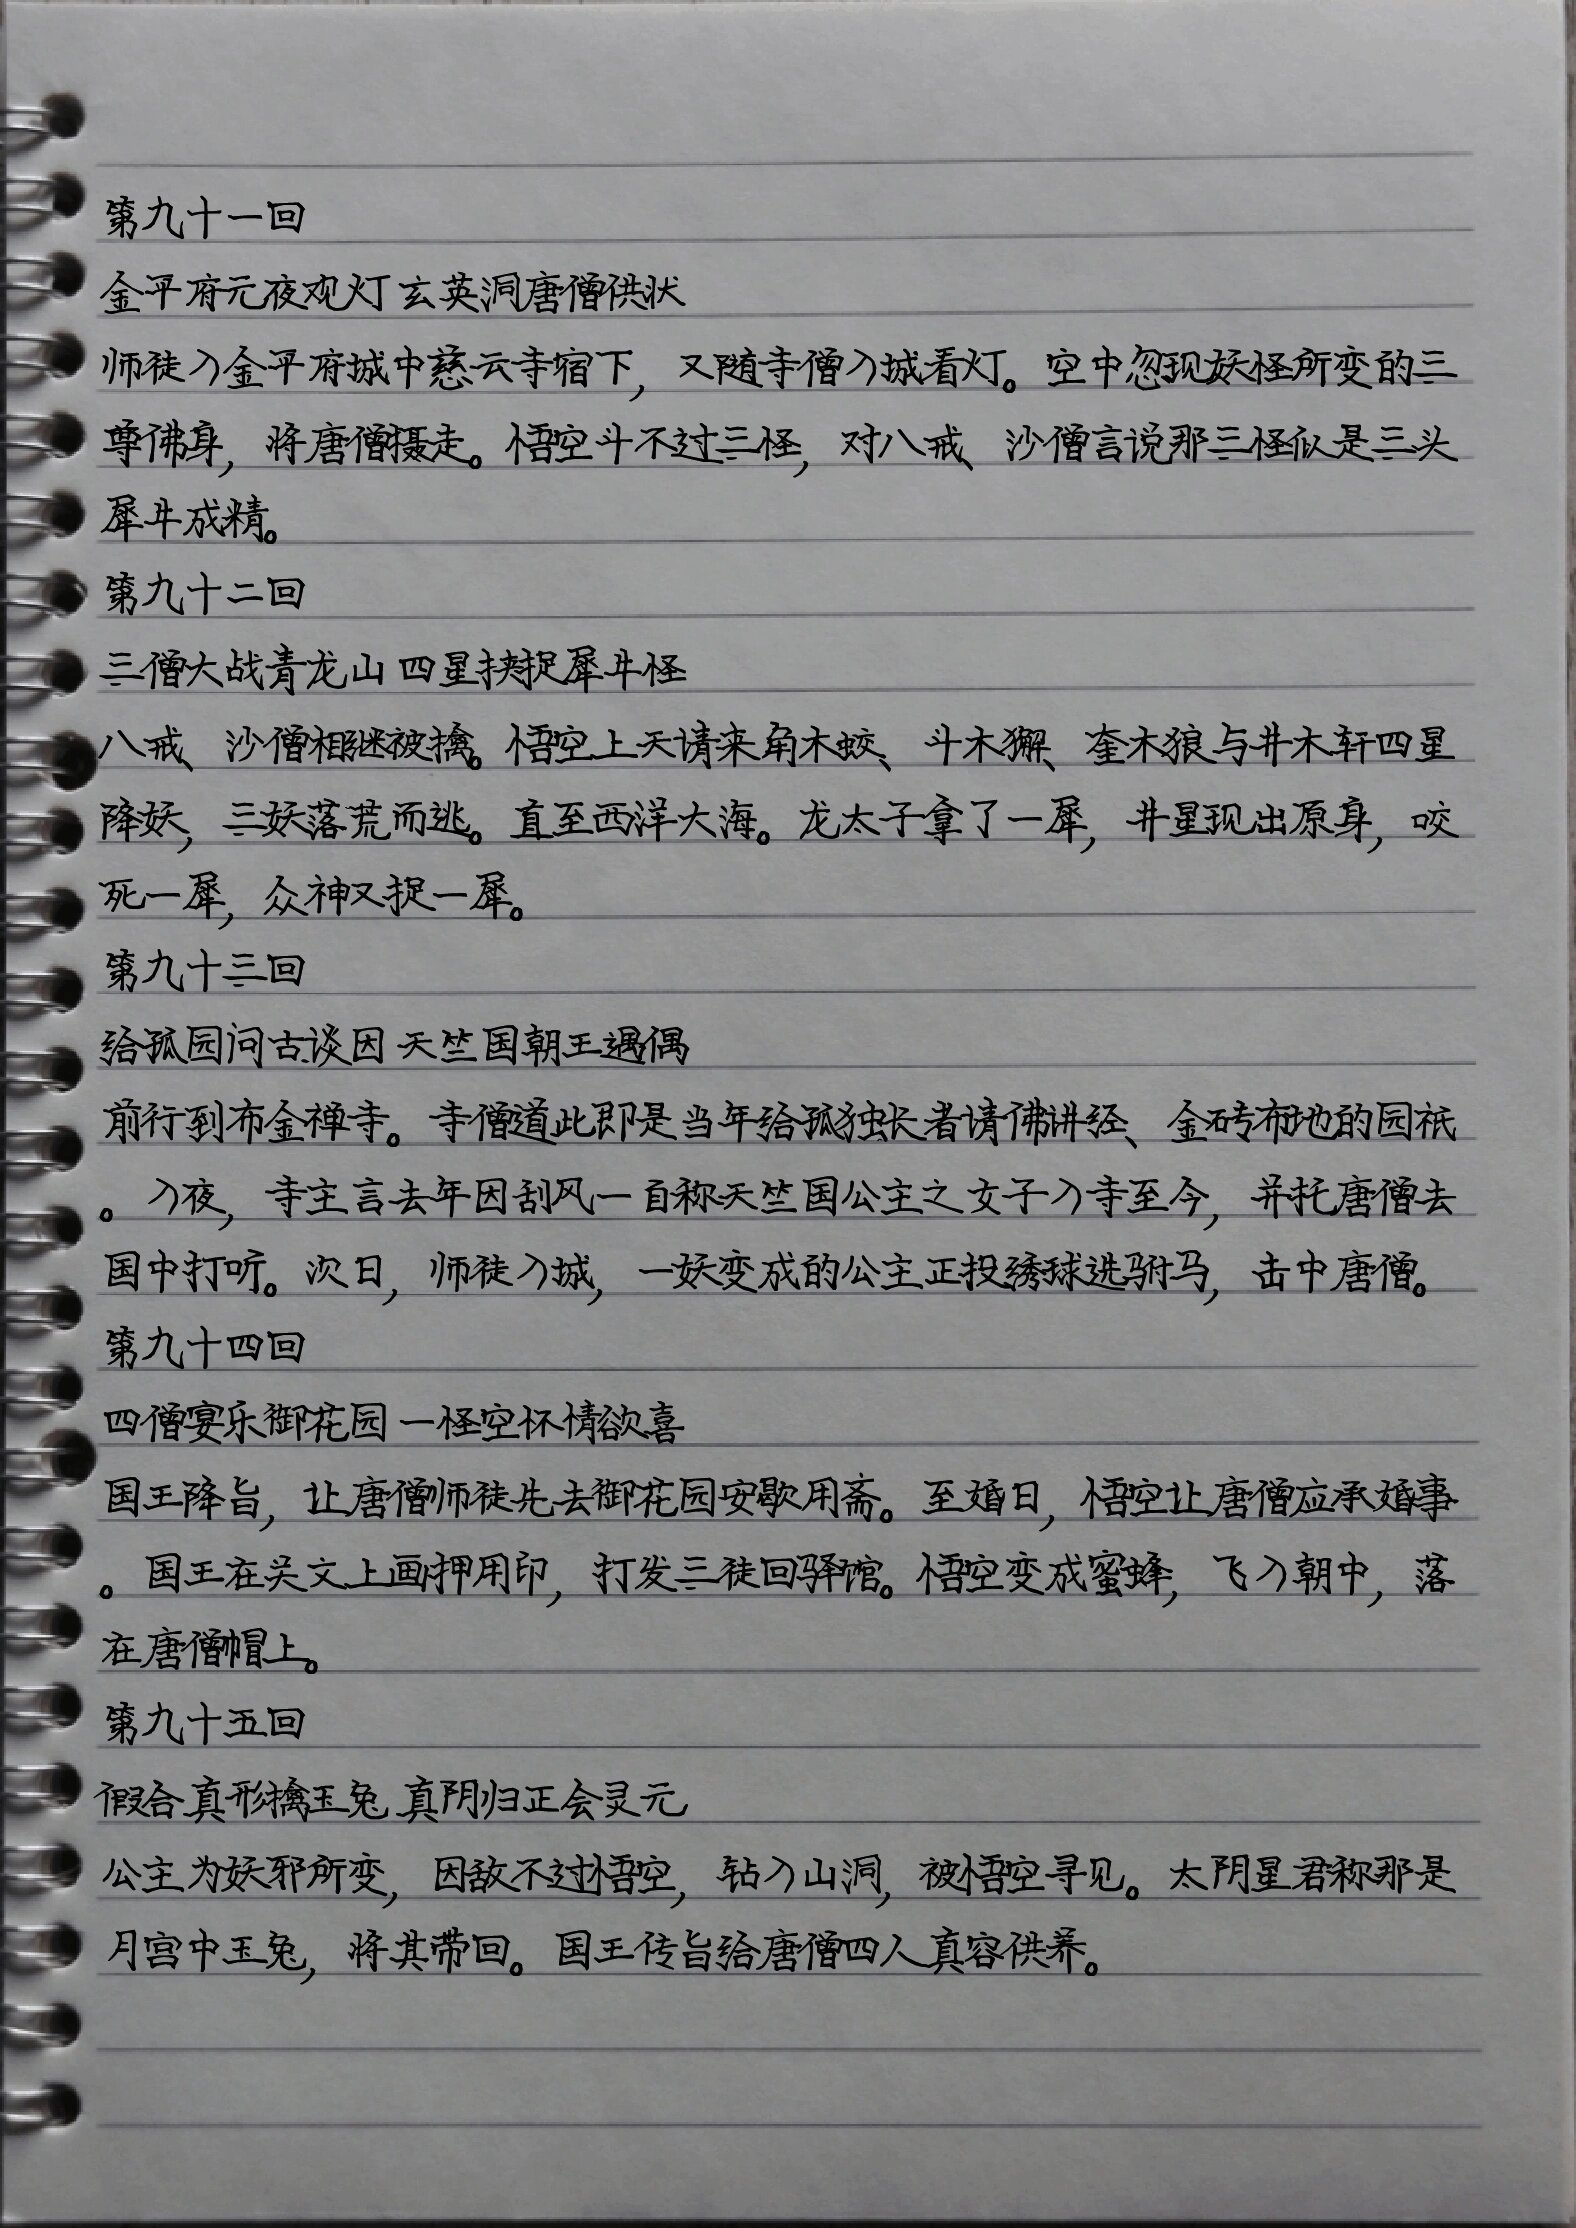 第九十一回
金平府元夜观灯 玄英洞唐僧供状
师徒入金平府城中慈云寺宿下，又随寺僧入城看灯。空中忽现妖怪所变的三
尊佛身，将唐僧摄走。悟空斗不过三怪，对八戒、沙僧言说那三怪似是三头
犀牛成精。
第九十二回
三僧大战青龙山 四星挟捉犀牛怪
八戒、沙僧相继被擒。悟空上天请来角木蛟、斗木獬、奎木狼与井木轩四星
降妖，三妖落荒而逃。直至西洋大海。龙太子拿了一犀，井星现出原身，咬
死一犀，众神又捉一犀。
第九十三回
给孤园问古谈因 天竺国朝王遇偶
前行到布金禅寺。寺僧道此即是当年给孤独长者请佛讲经、金砖布地的园祇
。入夜，寺主言去年因刮风一自称天竺国公主之女子入寺至今，并托唐僧去
国中打听。次日，师徒入城，一妖变成的公主正投绣球选驸马，击中唐僧。
第九十四回
四僧宴乐御花园 一怪空怀情欲喜
国王降旨，让唐僧师徒先去御花园安歇用斋。至婚日，悟空让唐僧应承婚事
。国王在关文上画押用印，打发三徒回驿馆。悟空变成蜜蜂，飞入朝中，落
在唐僧帽上。
第九十五回
假合真形擒玉兔 真阴归正会灵元
公主为妖邪所变，因敌不过悟空，钻入山洞，被悟空寻见。太阴星君称那是
月宫中玉兔，将其带回。国王传旨给唐僧四人真容供养。